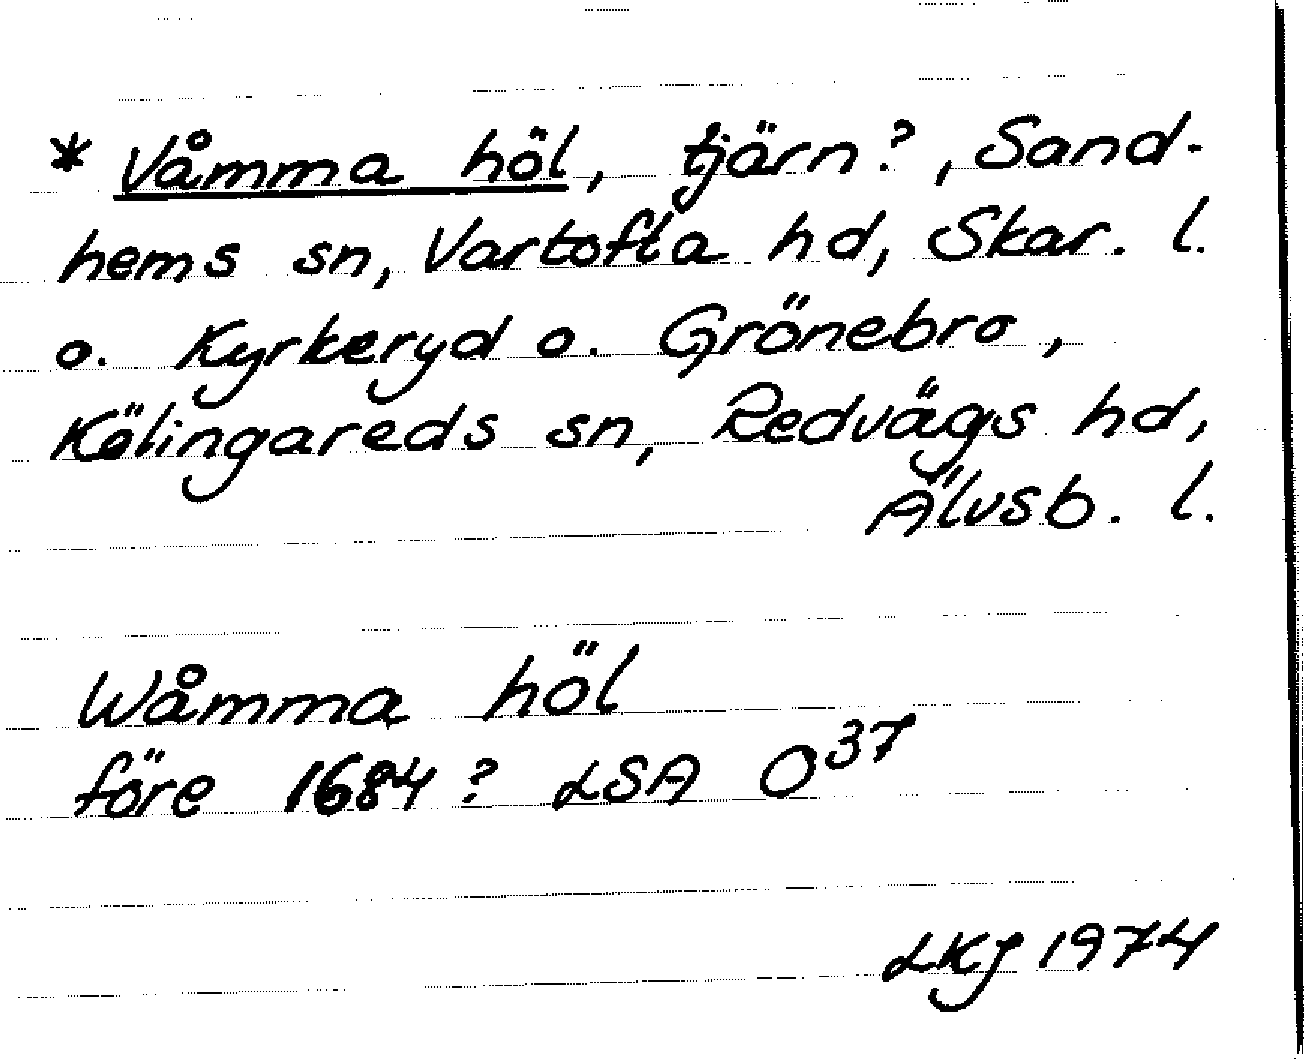 * Våmma höl, tjärn?, Sand-
hems sn, Vartofta hd, Skar. l.
o. Kyrkeryd o. Grönebro,
Kölingareds sn, Redvägs hd,
Älvsb. l.
Wåmma höl
före 1684? LSA O37
LKJ 1974